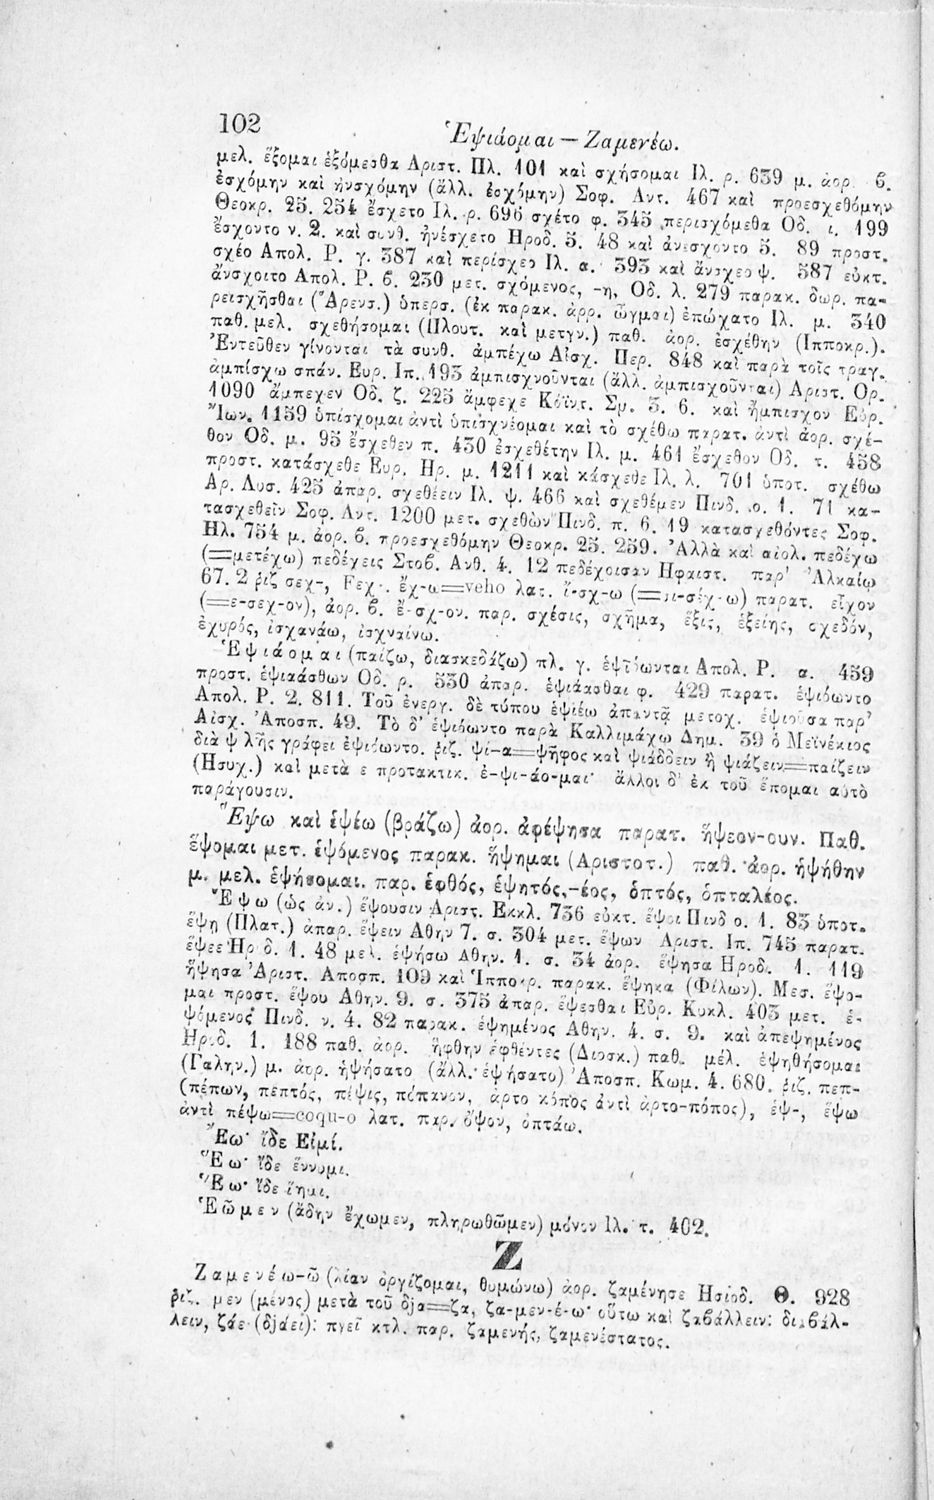 102
Ἑψιάομαι — Ζαμενέω.
μελ. ἕξομαι ἑξόμεσθα Αριστ. Πλ. 101 καὶ σχήσομαι Ιλ. ρ. 639 μ. ἀορ. 6.
ἐσχόμην καὶ ἠνσχόμην (ἄλλ. ἐσχόμην) Σοφ. Αντ. 467 καὶ προεσχεθόμην
Θεοκρ. 25. 254 ἔσχετο Ιλ. ρ. 696 σχέτο φ. 345 περισχόμεθα Οδ. ι. 199
ἔσχοντο ν. 2. καὶ συνθ. ἠνέσχετο Ηροδ. 5. 48 καὶ ἀνέσχοντο 5. 89 προστ.
σχέο Απολ. Ρ. γ. 387 καὶ περίσχεο Ιλ. α. 393 καὶ ἄνσχεο ψ. 587 εὐκτ.
ἄνσχοιτο Απολ. Ρ. 6. 230 μετ. σχόμενος, -η, Οδ. λ. 279 παρακ. δωρ. πα-
ρεισχῆσθαι (Ἄρενσ.) ὑπερσ. (ἐκ παρακ. ἀρρ. ὦγμαι) ἐπώχατο Ιλ. μ. 340
παθ. μελ. σχεθήσομαι (Πλουτ. καὶ μετγν.) παθ. ἀορ. ἐσχέθην (Ιπποκρ.).
Ἐντεῦθεν γίνονται τὰ συνθ. ἀμπέχω Αἰσχ. Περ. 848 καὶ παρὰ τοῖς τραγ.
ἀμπίσχω σπάν. Ευρ. Ιπ. 193 ἀμπισχνοῦνται (ἄλλ. ἀμπισχοῦνται) Αριστ. Ορ.
1090 ἄμπεχεν Οδ. ζ. 225 ἄμφεχε Κόϊντ. Σμ. 3. 6. καὶ ἤμπισχον Εὐρ.
Ἴων. 1159 ὑπίσχομαι ἀντὶ ὑπισχνέομαι καὶ τὸ σχέθω παρατ. ἀντὶ ἀορ. σχέ-
θον Οδ. μ. 95 ἔσχεθεν π. 430 ἐσχεθέτην Ιλ. μ. 461 ἔσχεθον Οδ. τ. 458
προστ. κατάσχεθε Ευρ. Ηρ. μ. 1211 καὶ κάσχεθε Ιλ. λ. 701 ὑποτ. σχέθω
Αρ. Λυσ. 425 ἀπαρ. σχεθέειν Ιλ. ψ. 466 καὶ σχεθέμεν Πινδ. ο. 1. 71 κα-
τασχεθεῖν Σοφ. Αντ. 1200 μετ. σχεθὼν Πινδ. π. 6. 19 κατασχεθόντες Σοφ.
Ηλ. 754 μ. ἀορ. 6. προεσχεθόμην Θεοκρ. 25. 259. Ἀλλὰ καὶ αἰολ. πεδέχω
(=μετέχω) πεδέχεις Στοβ. Ανθ. 4. 12 πεδέχοισαν Ηφαιστ. παρ' Ἀλκαίῳ
67. 2 ῥιζ σεχ-, Fεχ-. ἔχ-ω=veho λατ. ἴ-σχ-ω (=σι-σέχ-ω) παρατ. εἶχον
(=ε-σεχ-ον), ἀορ. 6. ἔ-σχ-ον. παρ. σχέσις, σχῆμα, ἕξις, ἑξείης, σχεδόν,
ἐχυρός, ἰσχανάω, ἰσχναίνω.
Ἑψιάομαι (παίζω, διασκεδάζω) πλ. γ. ἑψιόωνται Απολ. Ρ. α. 459
προστ. ἑψιαάσθων Οδ. ρ. 530 ἀπαρ. ἑψιάασθαι φ. 429 παρατ. ἑψιόωντο
Απολ. Ρ. 2. 811. Τοῦ ἐνεργ. δὲ τύπου ἑψιέω ἀπαντᾷ μετοχ. ἑψιοῦσα παρ'
Αἰσχ. Ἀποσπ. 49. Τὸ δ' ἑψιόωντο παρὰ Καλλιμάχῳ Δημ. 39 ὁ Μεϊνέκιος
διὰ ψιλῆς γράφει ἐψιόωντο. ῥιζ. ψί-α=ψῆφος καὶ ψιάδδειν ἢ ψιάζειν=παίζειν
(Ησυχ.) καὶ μετὰ ε προτακτικ. ἑ-ψι-άο-μαι· ἄλλοι δ' ἐκ τοῦ ἕπομαι αὐτὸ
παράγουσιν.
Ἕψω καὶ ἑψέω (βράζω) ἀορ. ἀφέψησα παρατ. ἥψεον-ουν. Παθ.
ἕψομαι μετ. ἑψόμενος παρακ. ἥψημαι (Αριστοτ.) παθ. ἀορ. ἡψήθην
μ. μελ. ἑψήσομαι. παρ. ἑφθός, ἑψητός,-έος, ὀπτός, ὀπταλέος.
Ἕψω (ὡς ἀν.) ἕψουσιν Αριστ. Εκκλ. 736 εὐκτ. ἕψοι Πινδ ο. 1. 83 ὑποτ.
ἕψῃ (Πλατ.) ἀπαρ. ἕψειν Αθην 7. σ. 304 μετ. ἕψων Αριστ. Ιπ. 745 παρατ.
ἕψεε Ηροδ. 1. 48 μελ. ἑψήσω Αθην. 1. σ. 34 ἀορ. ἕψησα Ηροδ. 1. 119
ἥψησα Ἀριστ. Αποσπ. 109 καὶ Ἱπποκρ. παρακ. ἕψηκα (Φίλων). Μεσ. ἕψο-
μαι προστ. ἕψου Αθην. 9. σ. 375 ἀπαρ. ἕψεσθαι Εὐρ. Κυκλ. 403 μετ. ἑ-
ψόμενος Πινδ. ν. 4. 82 παρακ. ἑψημένος Αθην. 4. σ. 9. καὶ ἀπεψημένος
Ηροδ. 1. 188 παθ. ἀορ. ἥφθην ἑφθέντες (Διοσκ.) παθ. μέλ. ἑψηθήσομαι
(Γαλην.) μ. ἀορ. ἡψήσατο (ἄλλ. ἑψήσατο) Ἀποσπ. Κωμ. 4. 680. ῥιζ. πεπ-
(πέπων, πεπτός, πέψις, πόπανον, ἀρτο κόπος ἀντὶ ἀρτο-πόπος), ἑψ-, ἕψω
ἀντὶ πέψω=coqu-o λατ. παρ. ὄψον, ὀπτάω.
Ἔω· ἴδε Εἰμί.
Ἕω· ἴδε ἕννυμι.
Ἕω· ἴδε ἵημι.
Ἑῶμεν (ἄδην ἔχωμεν, πληρωθῶμεν) μόνον Ιλ. τ. 402.
Ζ
Ζαμενέω-ῶ (λίαν ὀργίζομαι, θυμώνω) ἀορ. ζαμένησε Ησίοδ. Θ. 928
ῥιζ. μεν (μένος) μετὰ τοῦ δjα=ζα, ζα-μεν-έ-ω· οὕτω καὶ ζαβάλλειν: διαβάλ-
λειν, ζάε (δjάει): πνεῖ κτλ. παρ. ζαμενής, ζαμενέστατος.